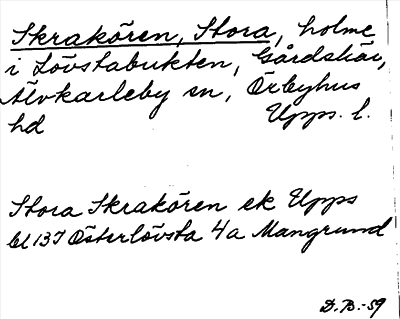 Skrakören, Stora, holme
i Lövstabukten, Gårdskär,
Älvkarleby sn, Örbyhus
hd Upps. l.
Stora Skrakören ek Upps
bl 137 Österlövsta 4a Mangrund
D.B.-59